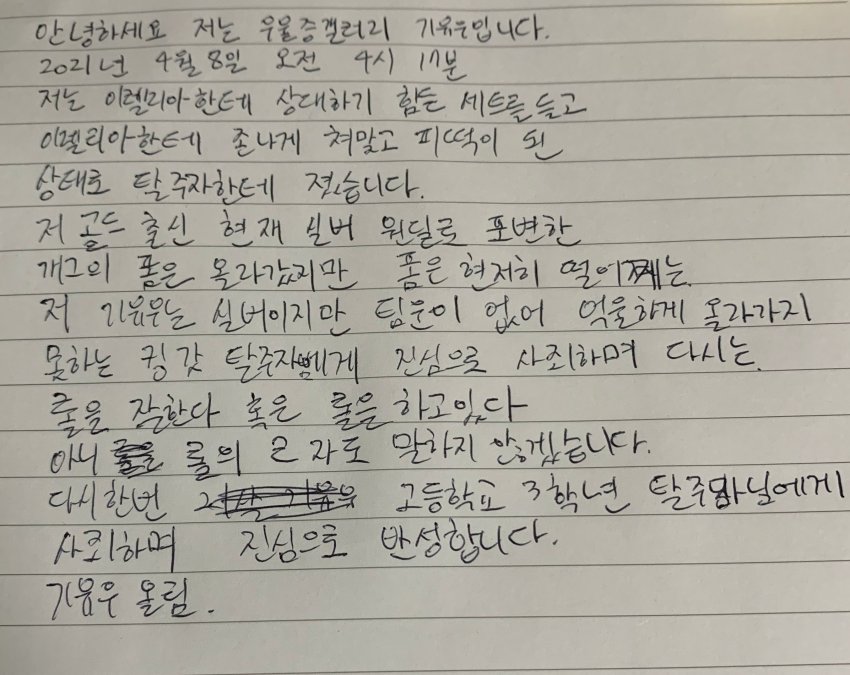 안녕하세요 저는 우울증갤러리 기유우입니다.
2021년 4월 8일 오전 4시 17분
저는 이렐리아한테 상대하기 힘든 세트를 들고
이렐리아한테 존나게 쳐맞고 피떡이 된
상태로 탈주자한테 졌습니다.
저 골드 출신 현재 실버 원딜로 포변한
개그의 폼은 올라갔지만 폼은 현저히 떨어째는
저 기유우는 실버이지만 팀운이 없어 억울하게 올라가지
못하는 킹 갓 탈주자벰에게 진심으로 사죄하며 다시는
롤을 잘한다 혹은 롤을 하고있다
아니 롤의 ㄹ 자도 말하지 않겠습니다.
다시한번 고등학교 3학년 탈주마님에게
사죄하며 진심으로 반성합니다.
기유우 올림.